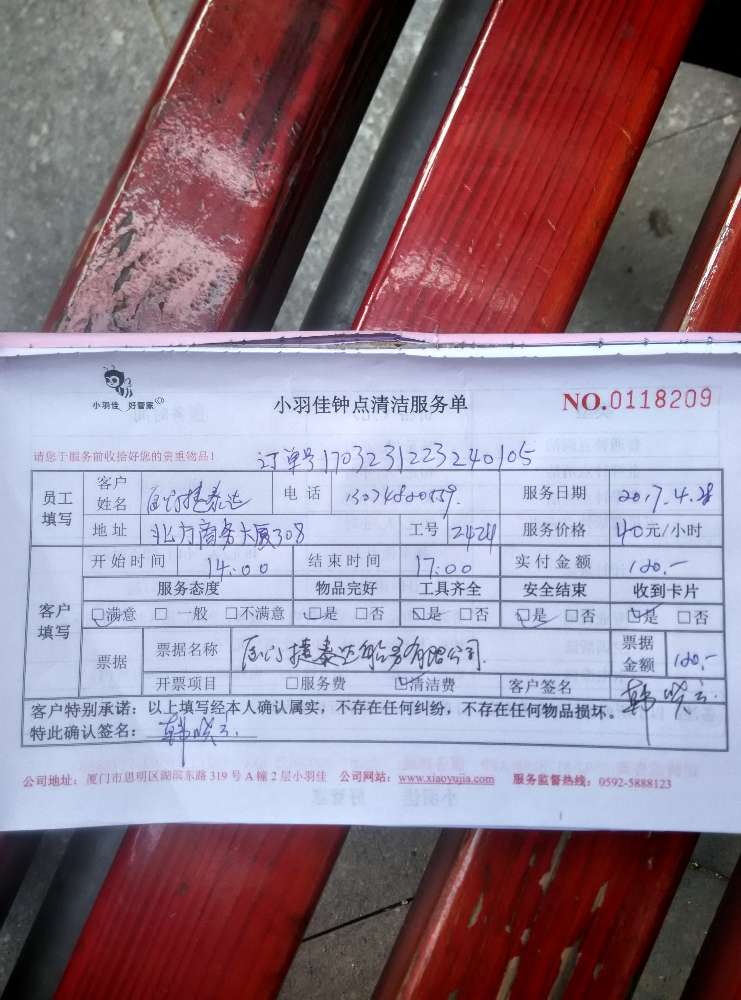 小羽佳 好管家
小羽佳钟点清洁服务单 NO.0118209
请您于服务前收拾好您的贵重物品! 订单号1703231223240105
员工填写 客户姓名 厦门捷泰达 电话 服务日期 2017.4.28
地址 北方商务大厦308 工号 2424 服务价格 40元/小时
客户填写 开始时间 14:00 结束时间 17:00 实付金额 120.-
服务态度 物品完好 工具齐全 安全结束 收到卡片
☑满意 □一般 □不满意 ☑是 □否 ☑是 □否 ☑是 □否 ☑是 □否
票据 票据名称 厦门捷泰达船务有限公司 票据金额 120.-
开票项目 □服务费 ☑清洁费 客户签名
客户特别承诺:以上填写经本人确认属实,不存在任何纠纷,不存在任何物品损坏。
特此确认签名:
公司地址:厦门市思明区湖滨东路319号A幢2层小羽佳 公司网站:www.xiaoyujia.com 服务监督热线:0592-5888123